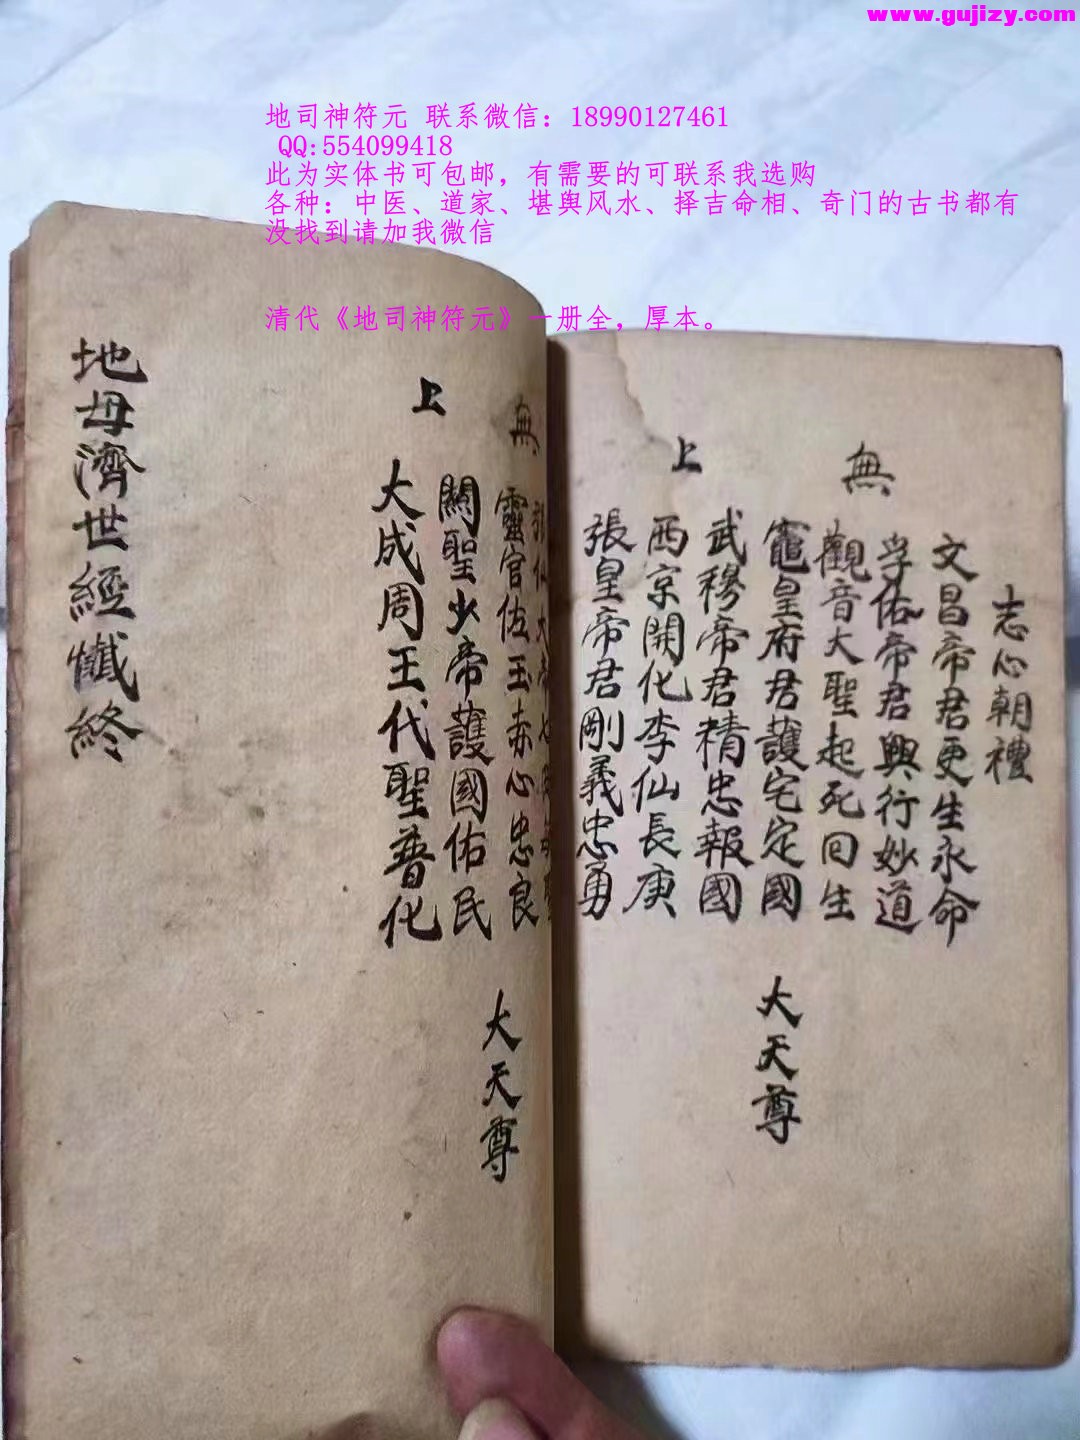 www.gujizy.com
地司神符元 联系微信：18990127461
QQ:554099418
此为实体书可包邮，有需要的可联系我选购
各种：中医、道家、堪舆风水、择吉命相、奇门的古书都有
没找到请加我微信
清代《地司神符元》一册全，厚本。
志心朝禮
文昌帝君更生永命
孚佑帝君興行妙道
無
觀音大聖起死回生
竈皇府君護宅定國
大天尊
武穆帝君精忠報國
上
西京開化李仙長庚
張皇帝君剛義忠勇
張仙大帝
無
靈官佐玉赤心忠良
大天尊
關聖少帝護國佑民
上
大成周王代聖普化
地母濟世經懺終